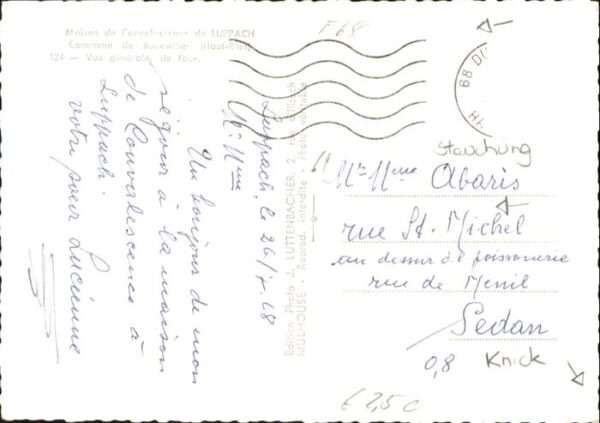 Maison de Convalescence de LUPPACH
Commune de Bouxwiller (Haut-Rhin)
124 - Vue générale de face.
F68
Luppach, le 26/7.68
Mr Mme
Un bonjour de mon
séjour à la maison
de Convalescence à
Luppach.
votre pour Lucienne
Edition Photo J. LUTTENBACHER, 2,
MULHOUSE - Reprod. interdite - Photo véritable
Stauchung
Mr Mme Abaris
rue St. Michel
au dessus de poissonnerie
rue de Menil
Sedan
0,8 Knick
€ 2,50